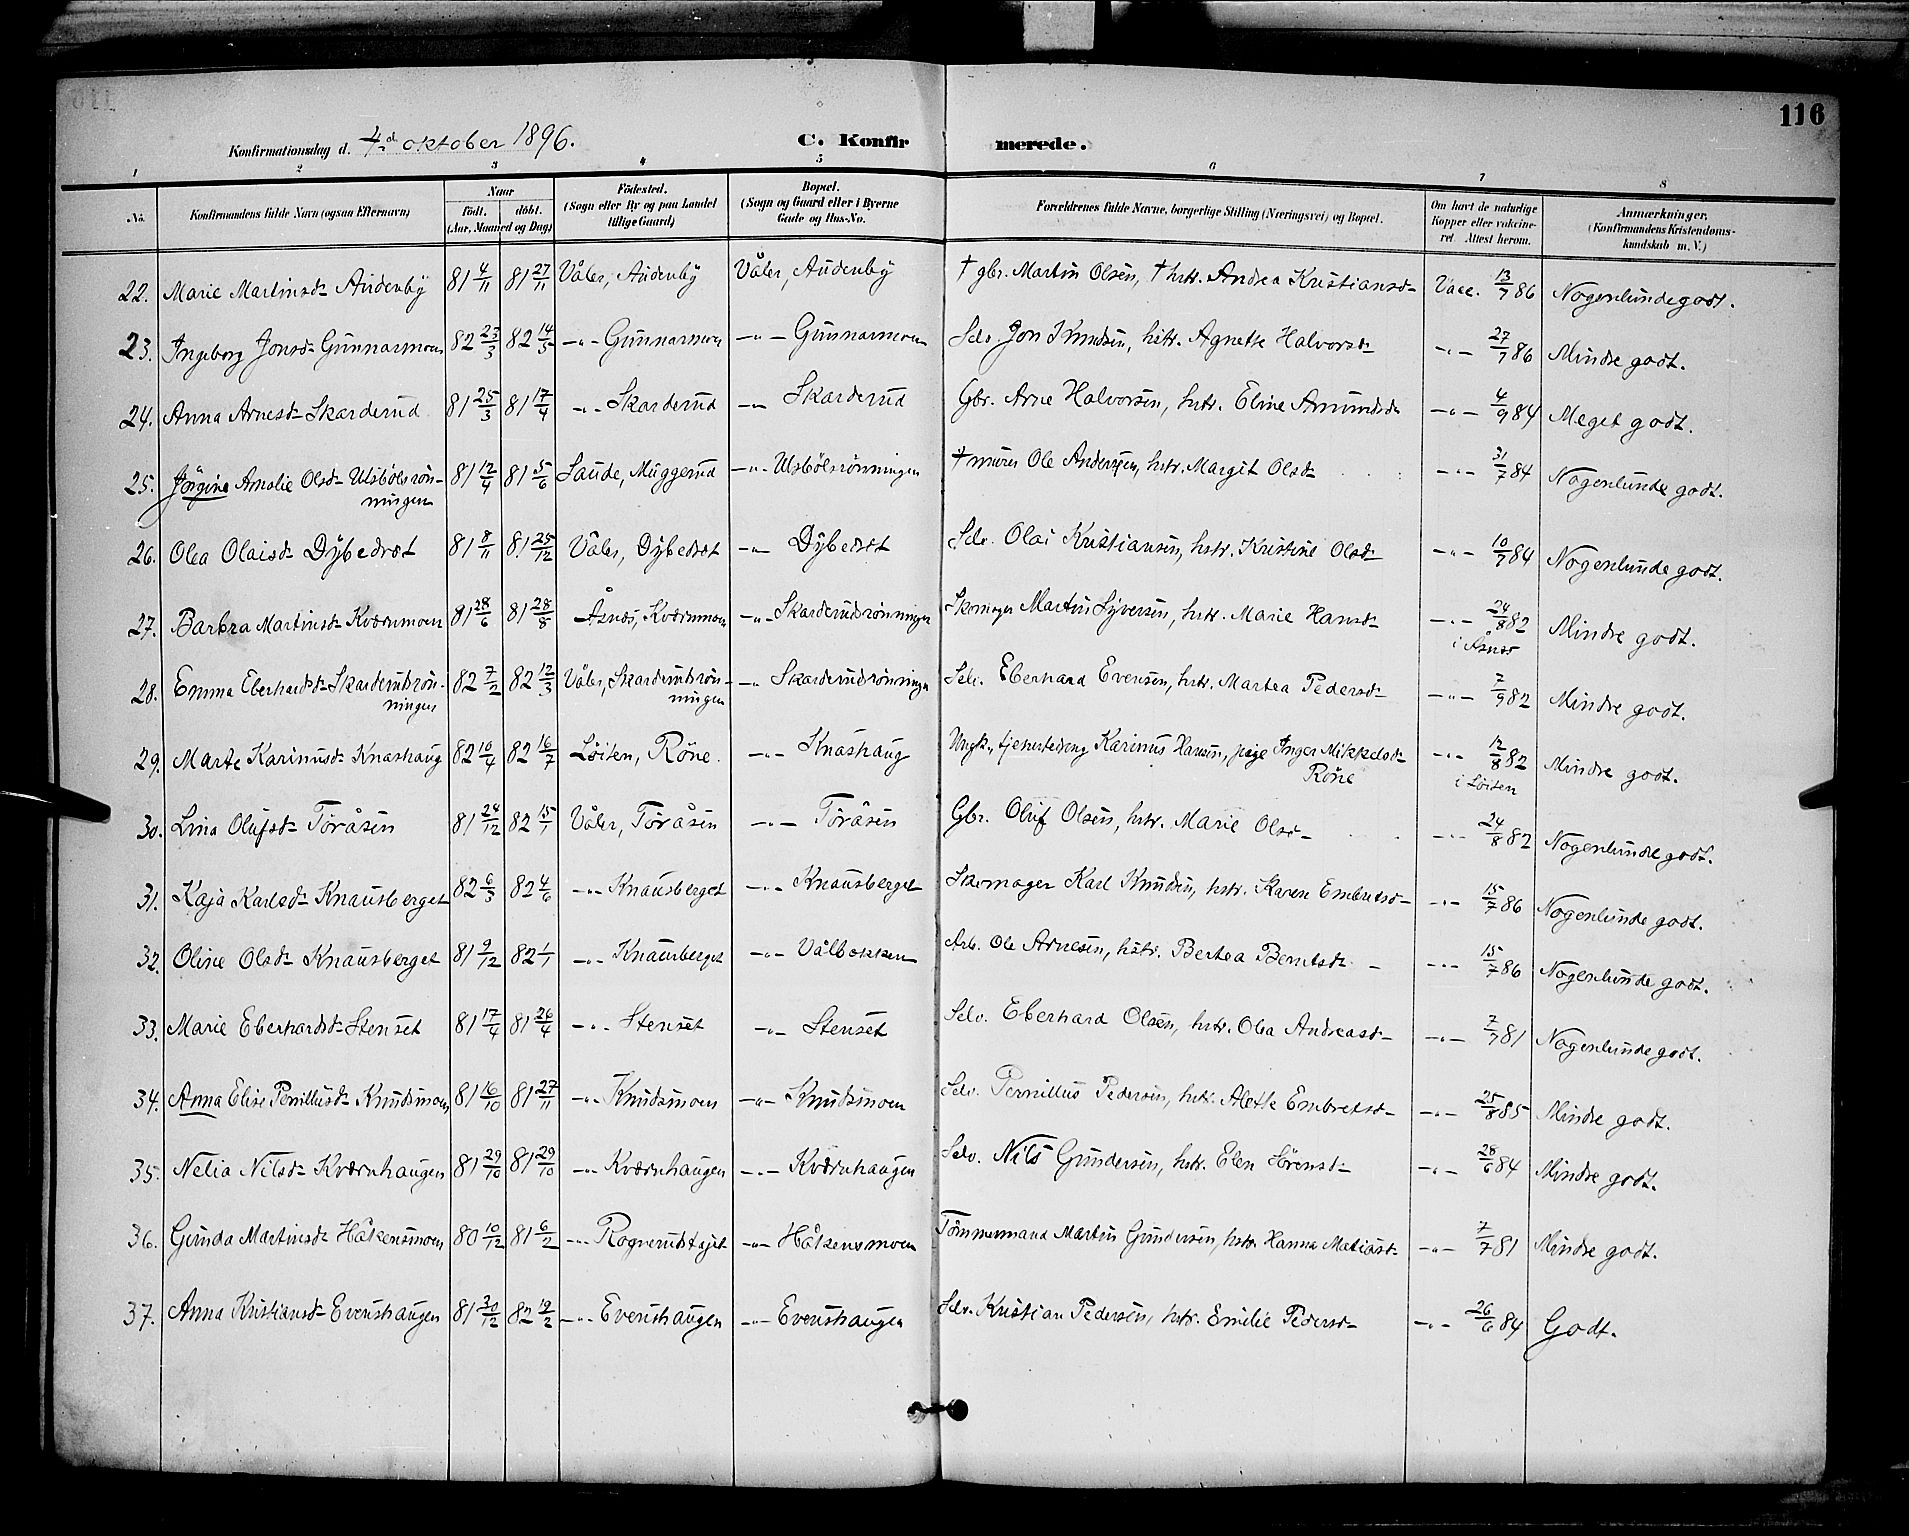 116
Konfirmationsdag d. 4de oktober 1896.
C. Konfirmerede.
1 2 3 4 5 6 7 8
No. Konfirmandens fulde Navn (ogsaa Efternavn) Naar födt. döbt. (Aar, Maaned og Dag) Födested. (Sogn eller By og paa Landet tillige Gaard) Bopæl. (Sogn og Gaard eller i Byerne Gade og Hus-No. Forældrenes fulde Navne, borgerlige Stilling (Næringsvei) og Bopæl. Om havt de naturlige Kopper eller vakcineret. Attest herom. Anmærkninger. (Konfirmandens Kristendomskundskab m. V.)
22. Marie Martinsd- Audenby 81 4/11 81 27/11 Våler, Audenby Våler, Audenby † gbr. Martin Olsen, † hstr. Andrea Kristiansd- Vacc. 13/7 86 Nogenlunde godt.
23. Ingeborg Jonsd- Gunnarmoen 82 23/3 82 14/5 -"- Gunnarmoen -"- Gunnarmoen Selv. Jon Knudsen, hstr. Agnette Halvorsd- -"- 27/7 86 Mindre godt.
24. Anna Arnesd- Skarderud 81 25/3 81 17/4 -"- Skarderud -"- Skarderud Gbr. Arne Halvorsen, hstr. Eline Amundsd- -"- 4/9 84 Meget godt.
25. Jörgine Amalie Olsd- Ulsbölsrön- 81 12/4 81 5/6 Saude, Muggerud -"- Ulsbölsrönningen † murer Ole Andersen, hstr. Margit Olsd- -"- 31/7 84 Nogenlunde godt.
ningen
26. Olea Olaisd- Dybedræt 81 8/11 81 25/12 Våler, Dybedræt -"- Dybedræt Selv. Olai Kristiansen, hstr. Kristine Olsd- -"- 10/7 84 Nogenlunde godt.
27. Barbra Martinsd- Kværnmoen 81 28/6 81 28/8 Åsnes, Kværnmoen -"- Skarderudrönningen Skomager Martin Syversen, hstr. Marie Hansd- -"- 24/8 82 Mindre godt.
i Åsnes
28. Emma Eberhardsd- Skarderudrön- 82 7/2 82 12/3 Våler, Skarderudrön- -"- Skarderudrönningen Selv. Eberhard Evensen, hstr. Martea Pedersd- -"- 7/9 82 Mindre godt.
ningen ningen
29. Marte Karinusd- Knashaug 82 10/4 82 16/7 Löiten, Röne. -"- Knashaug Ungk., tjenestedreng Karinus Hansen, pige Inger Mikkelsd- -"- 12/8 82 Mindre godt.
Röne i Löiten
30. Lina Olufsd- Toråsen 81 24/12 82 15/1 Våler, Toråsen -"- Toråsen Gbr. Oluf Olsen, hstr. Marie Olsd- -"- 24/8 82 Nogenlunde godt.
31. Kaja Karlsd- Knausberget 82 6/3 82 4/6 -"- Knausberget -"- Knausberget Skomager Karl Knudsen, hstr. Karen Embretsd- -"- 15/7 86 Nogenlunde godt.
32. Oline Olsd- Knausberget 81 9/12 82 1/1 -"- Knausberget -"- Vålbækken Arb. Ole Arnesen, hstr. Bertea Berntsd- -"- 15/7 86 Nogenlunde godt.
33. Marie Eberhardsd- Stenset 81 17/4 81 26/4 -"- Stenset -"- Stenset Selv. Eberhard Olsen, hstr. Olea Andreasd- -"- 7/7 81 Nogenlunde godt.
34. Anna Elise Pernillusd- Knudsmoen 81 16/10 81 27/11 -"- Knudsmoen -"- Knudsmoen Selv. Pernillus Pedersen, hstr. Alette Embretsd- -"- 25/8 85 Mindre godt.
35. Nelia Nilsd- Kværnhaugen 81 29/10 81 29/10 -"- Kværnhaugen -"- Kværnhaugen Selv. Nils Gundersen, hstr. Elen Sörensd- -"- 28/6 84 Mindre godt.
36. Gunda Martinsd- Håkensmoen 80 10/12 81 6/2 -"- Rognerudstajet -"- Håkensmoen Tömmermand Martin Gundersen, hstr. Hanna Matiasd- -"- 7/7 81 Mindre godt.
37. Anna Kristiansd- Evenshaugen 81 30/12 82 19/2 -"- Evenshaugen -"- Evenshaugen Selv. Kristian Pedersen, hstr. Emilie Pedersd- -"- 26/6 84 Godt.